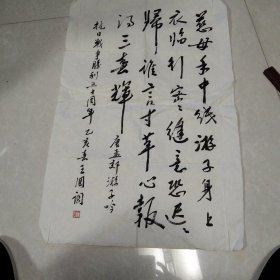 慈母手中线游子身上
衣临行密密缝意恐迟迟
归谁言寸草心报
得三春辉 唐孟郊游子吟
抗日战争胜利五十周年乙亥春王国询